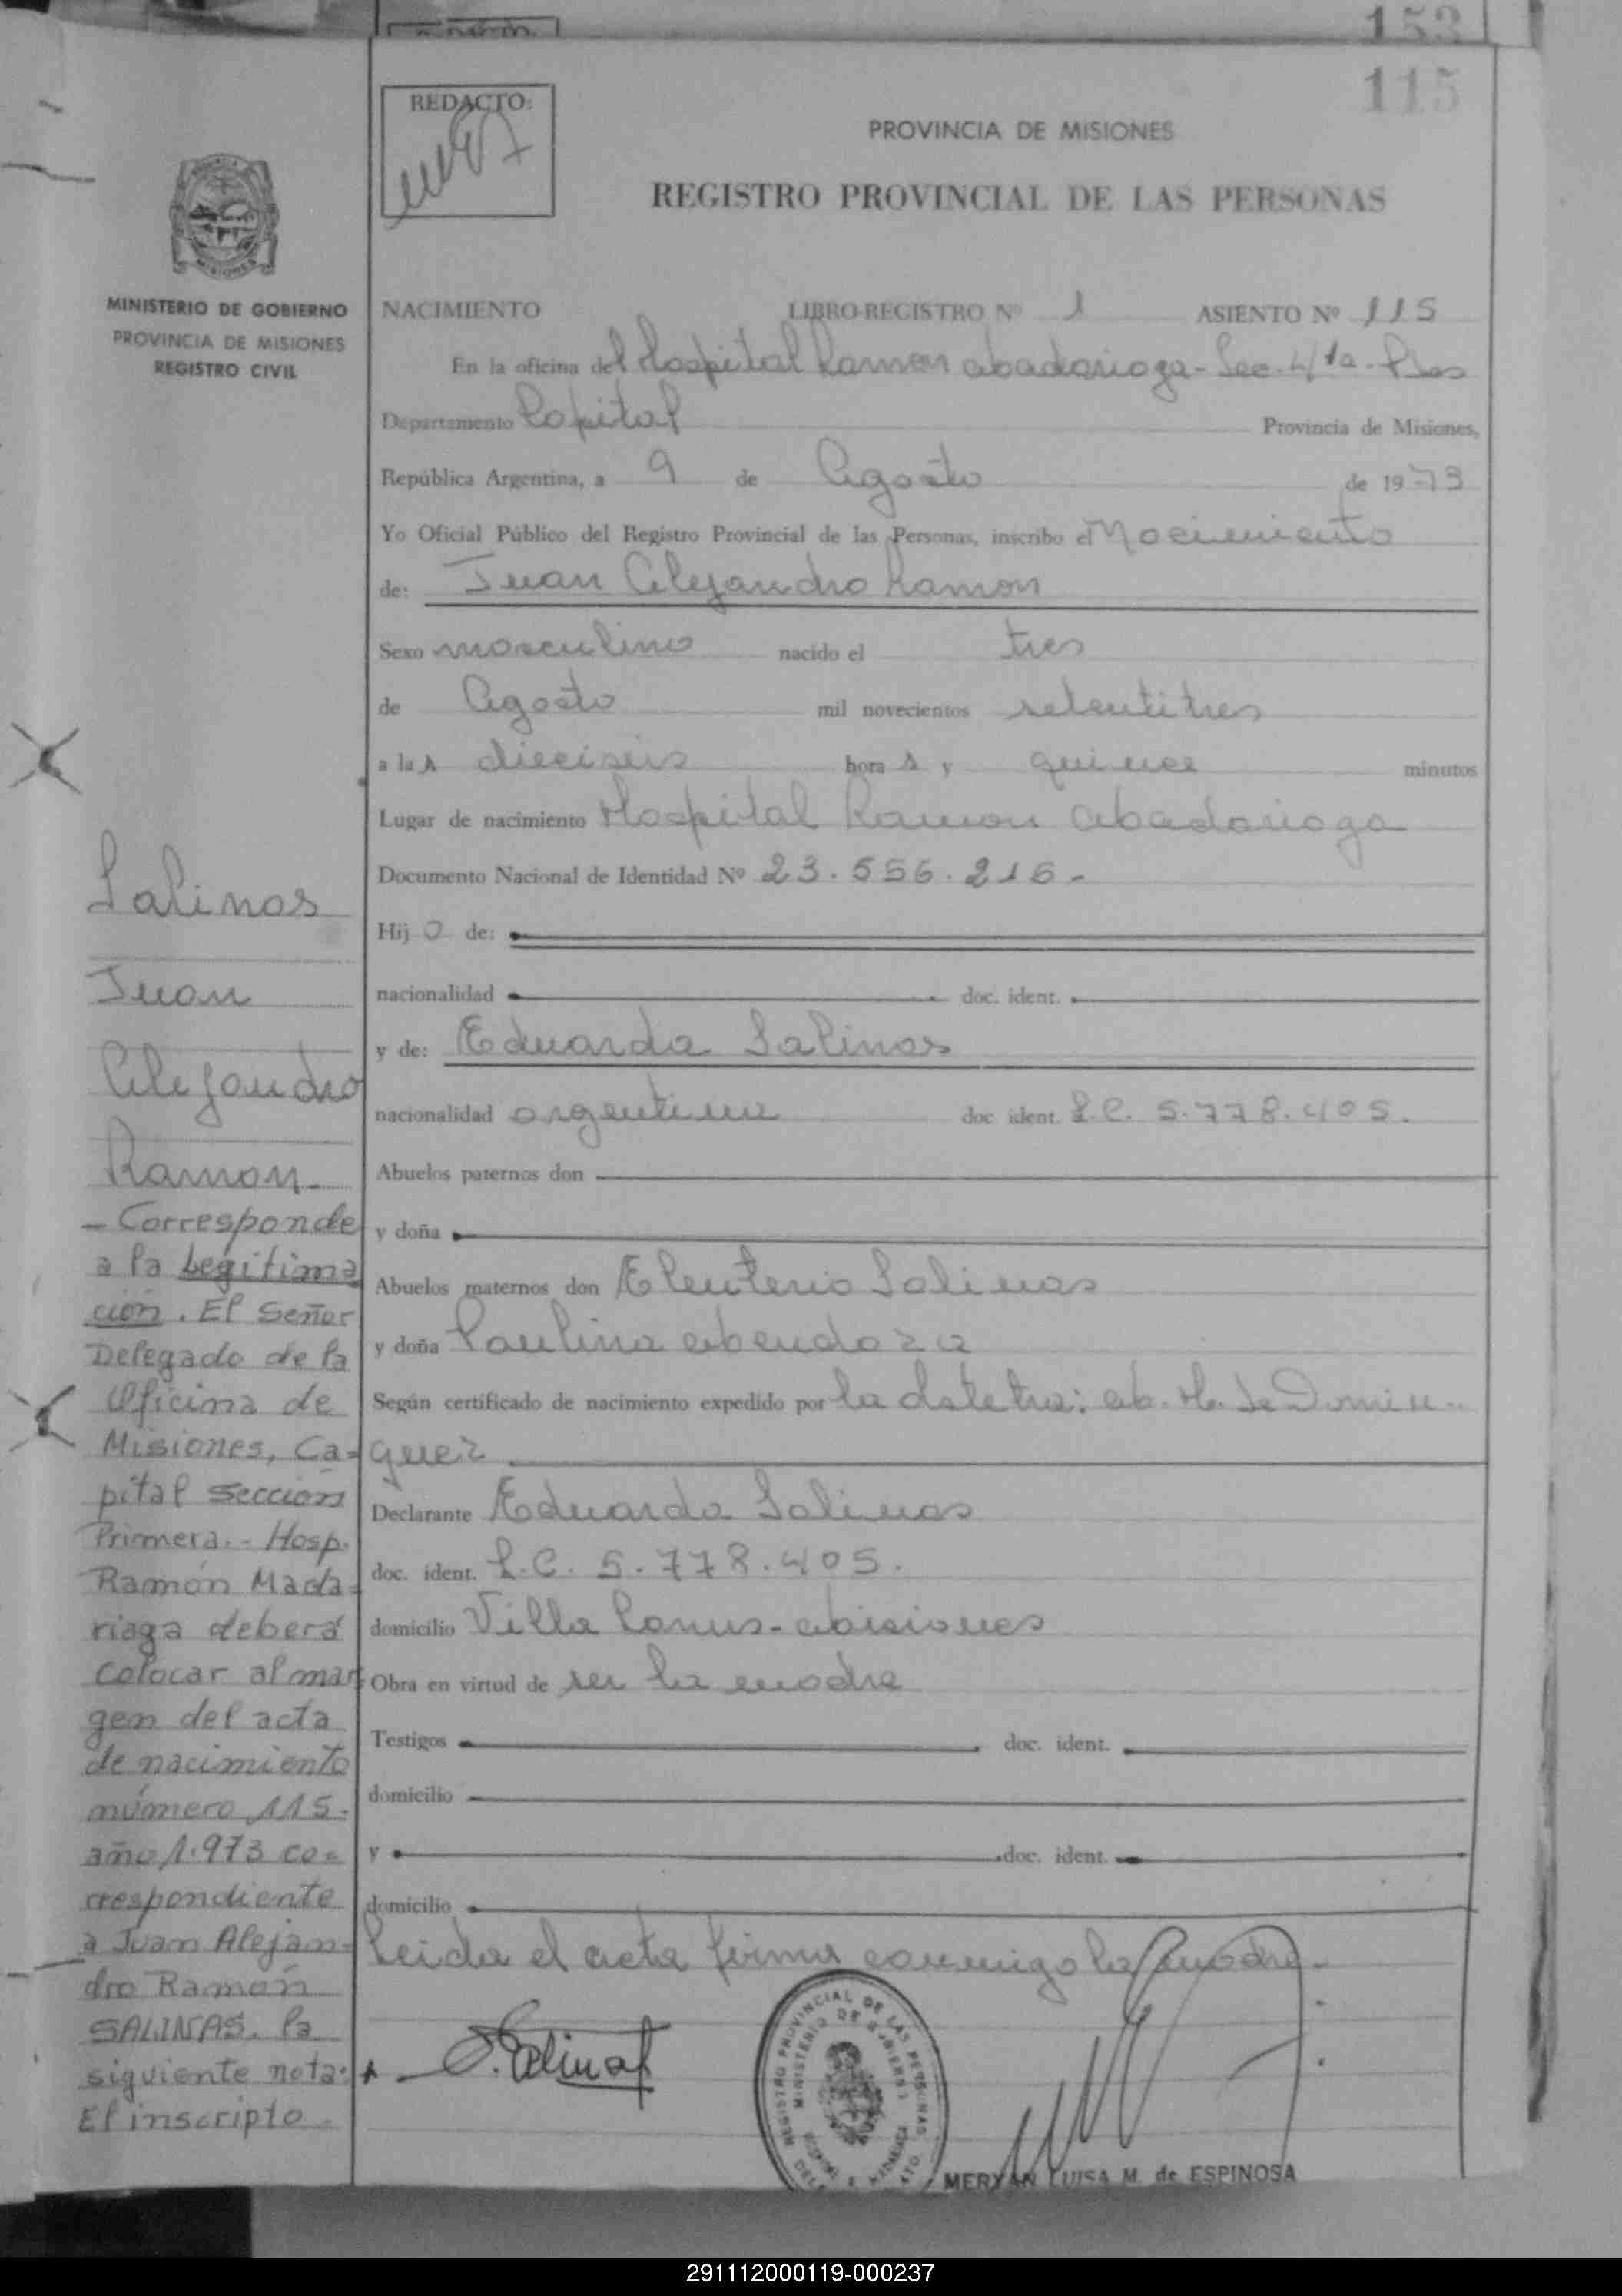 153
115
REDACTO:
PROVINCIA DE MISIONES
REGISTRO PROVINCIAL DE LAS PERSONAS
MISIONES
MINISTERIO DE GOBIERNO
PROVINCIA DE MISIONES
REGISTRO CIVIL
NACIMIENTO LIBRO-REGISTRO Nº 1 ASIENTO Nº 115
En la oficina del Hospital Ramon Madariaga - Sec. 1ra - Pdas
Departamento Capital Provincia de Misiones,
República Argentina, a 9 de Agosto de 1973
Yo Oficial Público del Registro Provincial de las Personas, inscribo el Nacimiento
de: Juan Alejandro Ramon
Sexo masculino nacido el tres
de Agosto mil novecientos setentitres
a las dieciseis horas y quince minutos
Lugar de nacimiento Hospital Ramon Madariaga
Documento Nacional de Identidad Nº 23.556.216-
Hijo de:
nacionalidad doc. ident.
y de: Eduarda Salinas
nacionalidad argentina doc ident. L.C. 5.778.405.
Abuelos paternos don
y doña
Abuelos maternos don Eleuterio Salinas
y doña Paulina Mendoza
Según certificado de nacimiento expedido por la obstetra: M. H. de Domin-
guez
Declarante Eduarda Salinas
doc. ident. L.C. 5.778.405.
domicilio Villa Lanus - Misiones
Obra en virtud de ser la madre
Testigos doc. ident.
domicilio
y doc. ident.
domicilio
Leida el acta firma conmigo la madre.-
E. Salinas
REGISTRO PROVINCIAL DE LAS PERSONAS
MINISTERIO DE GOBIERNO
MERYAN LUISA M. de ESPINOSA
Salinas
Juan
Alejandro
Ramon-
- Corresponde
a la Legitima
ción. El Señor
Delegado de la
Oficina de
Misiones, Ca=
pital Sección
Primera.- Hosp.
Ramón Mada=
riaga deberá
colocar al mar
gen del acta
de nacimiento
número 115.
año 1.973 co=
rrespondiente
a Juan Alejan=
dro Ramón
SALINAS. la
siguiente nota:
El inscripto
291112000119-000237